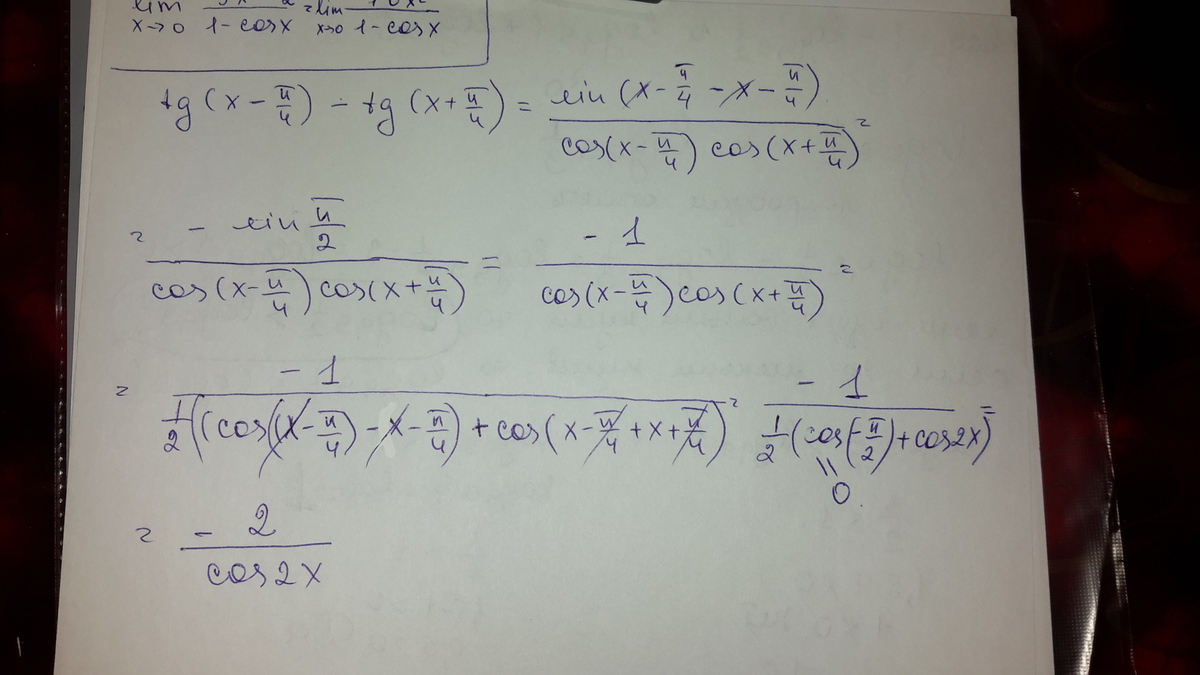 lim x→0 /(1-cosx) = lim x→0 /(1-cosx)
tg(x-π/4) - tg(x+π/4) = sin(x-π/4-x-π/4)/(cos(x-π/4) cos(x+π/4)) =
= -sin π/2/(cos(x-π/4)cos(x+π/4)) = -1/(cos(x-π/4)cos(x+π/4)) =
= -1/(1/2((cos(x-π/4)-x-π/4)+cos(x-π/4+x+π/4)) = -1/(1/2(cos(-π/2)+cos2x)) =
|| 0.
= -2/cos2x